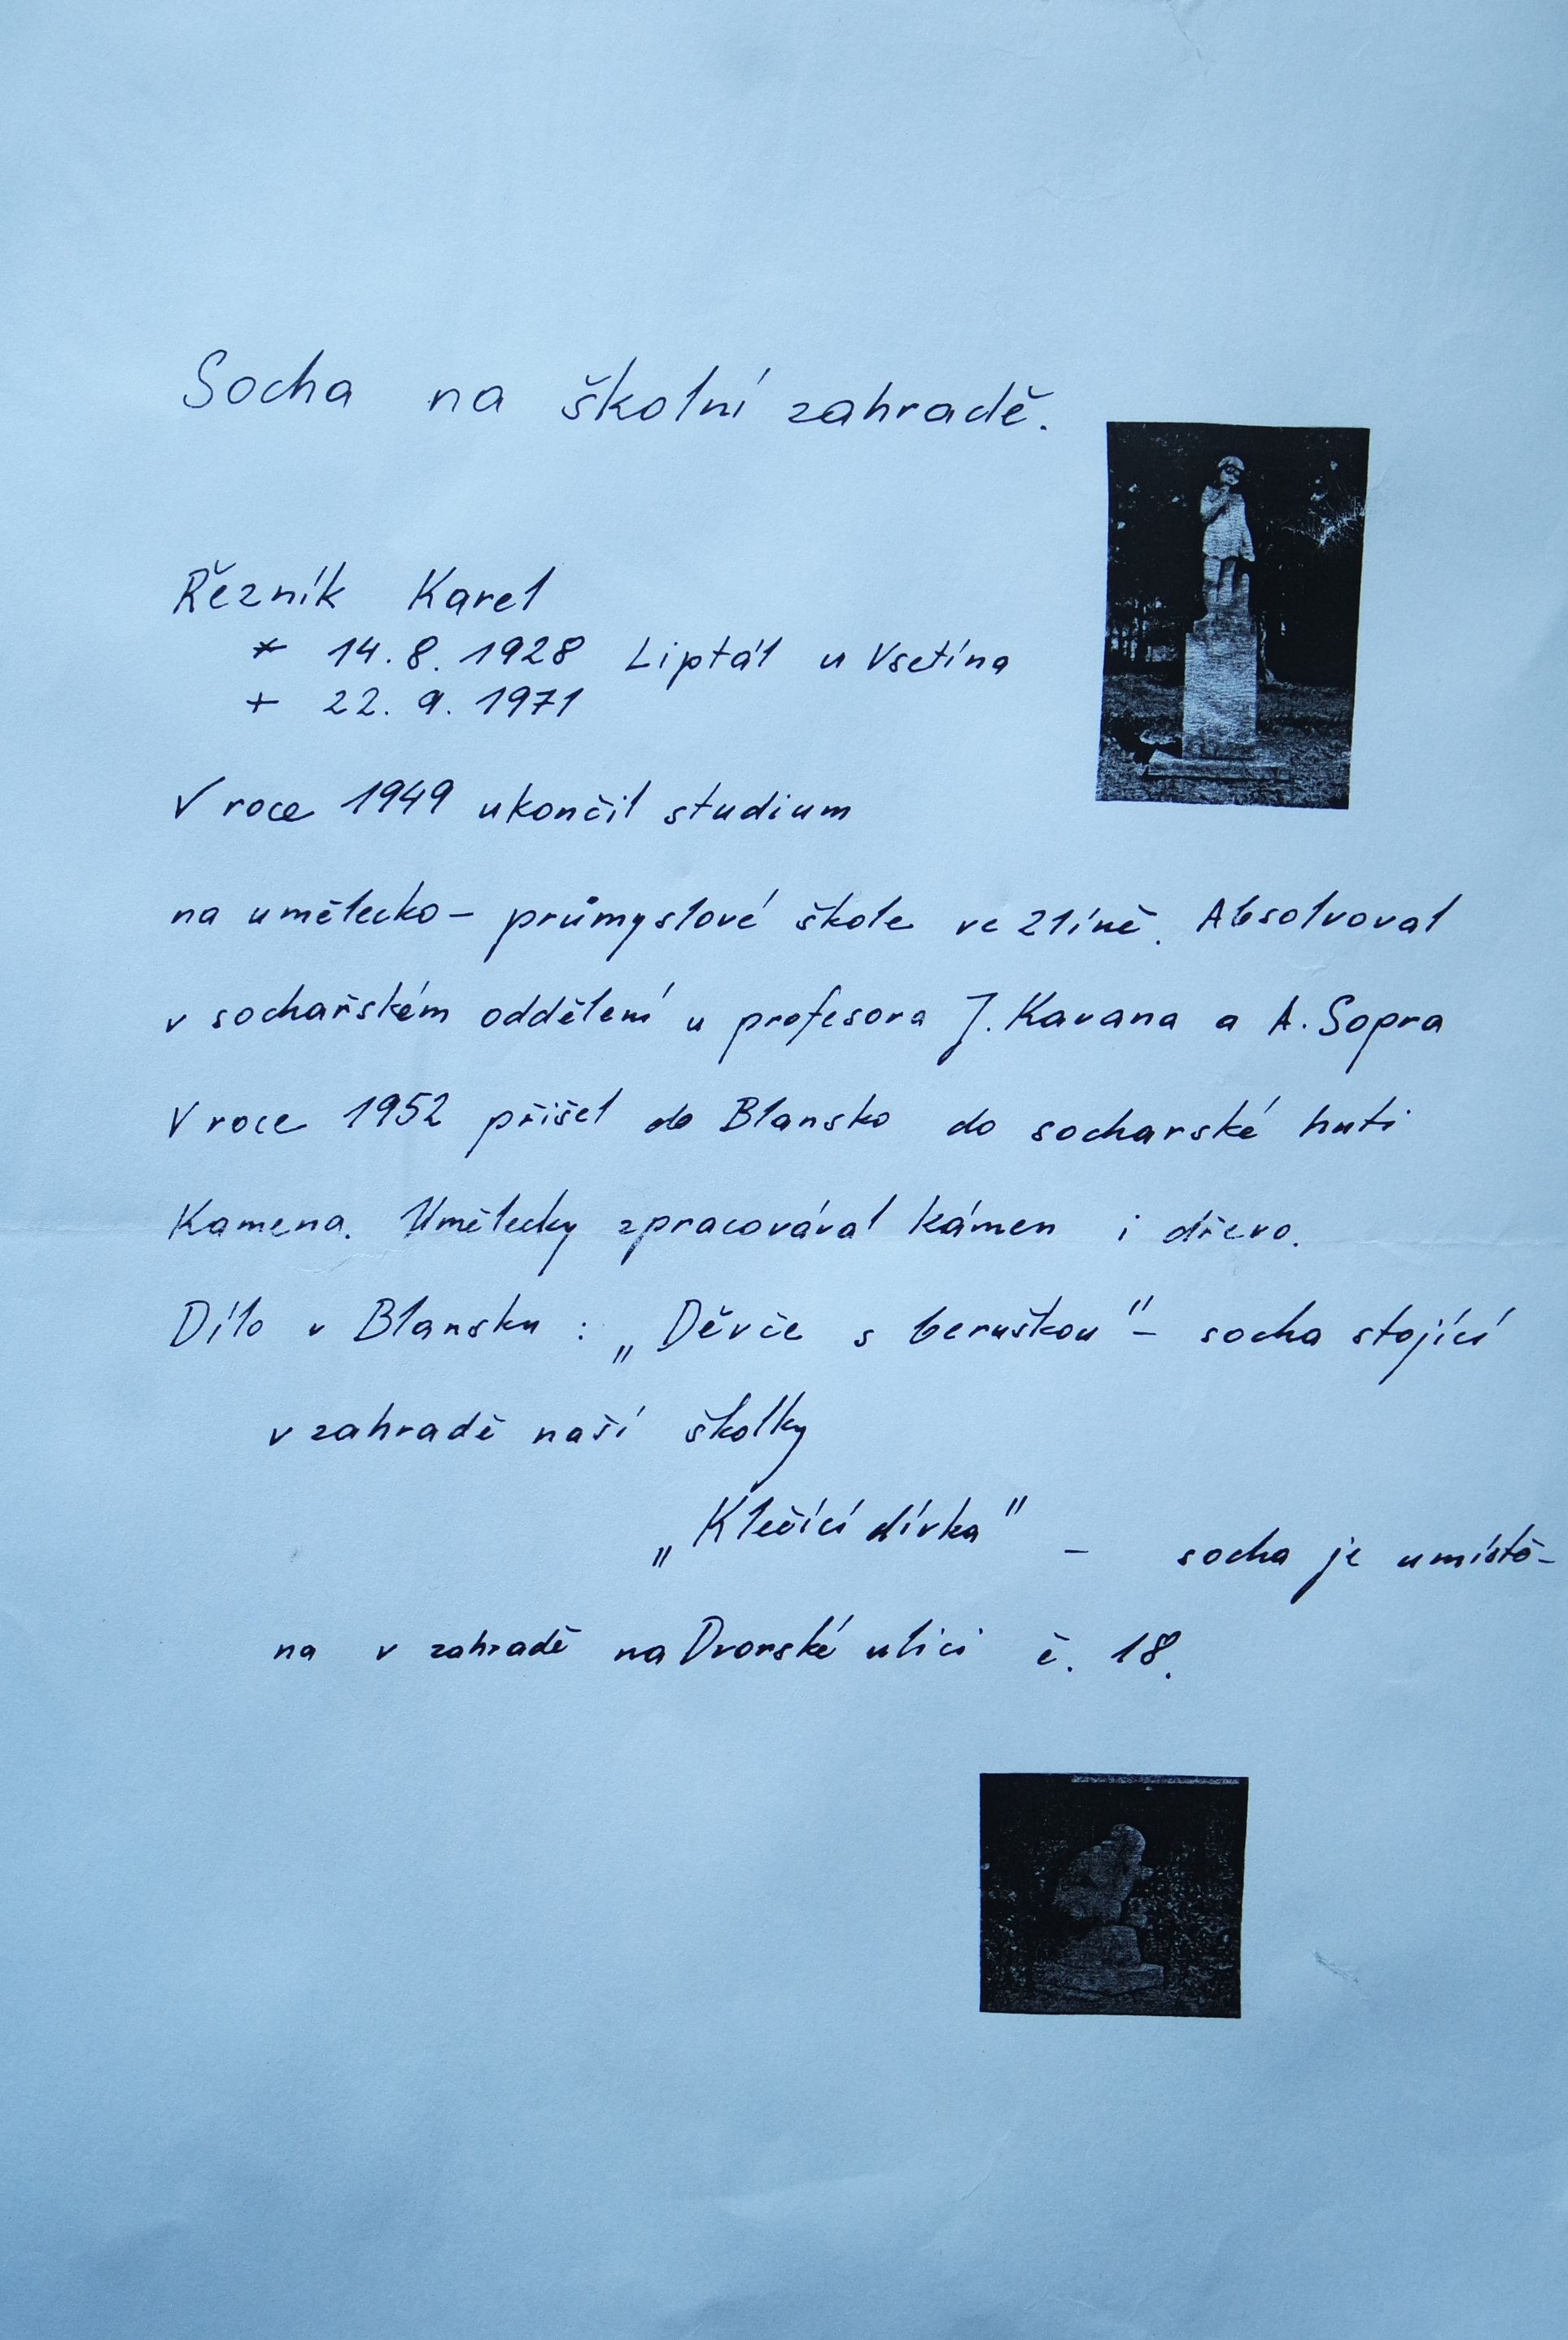 Socha na školní zahradě.
Řezník Karel
* 14. 8. 1928 Liptál u Vsetína
+ 22. 9. 1971
V roce 1949 ukončil studium
na umělecko - průmyslové škole ve Zlíně. Absolvoval
v sochařském oddělení u profesora J. Kavana a A. Sopra
V roce 1952 přišel do Blansko do socharské huti
Kamena. Umělecky zpracovával kámen i dřevo.
Dílo v Blansku : „Děvče s beruškou" - socha stojící
v zahradě naší školky
„Klečící dívka" - socha je umístě-
na v zahradě na Dvorské ulici č. 18.